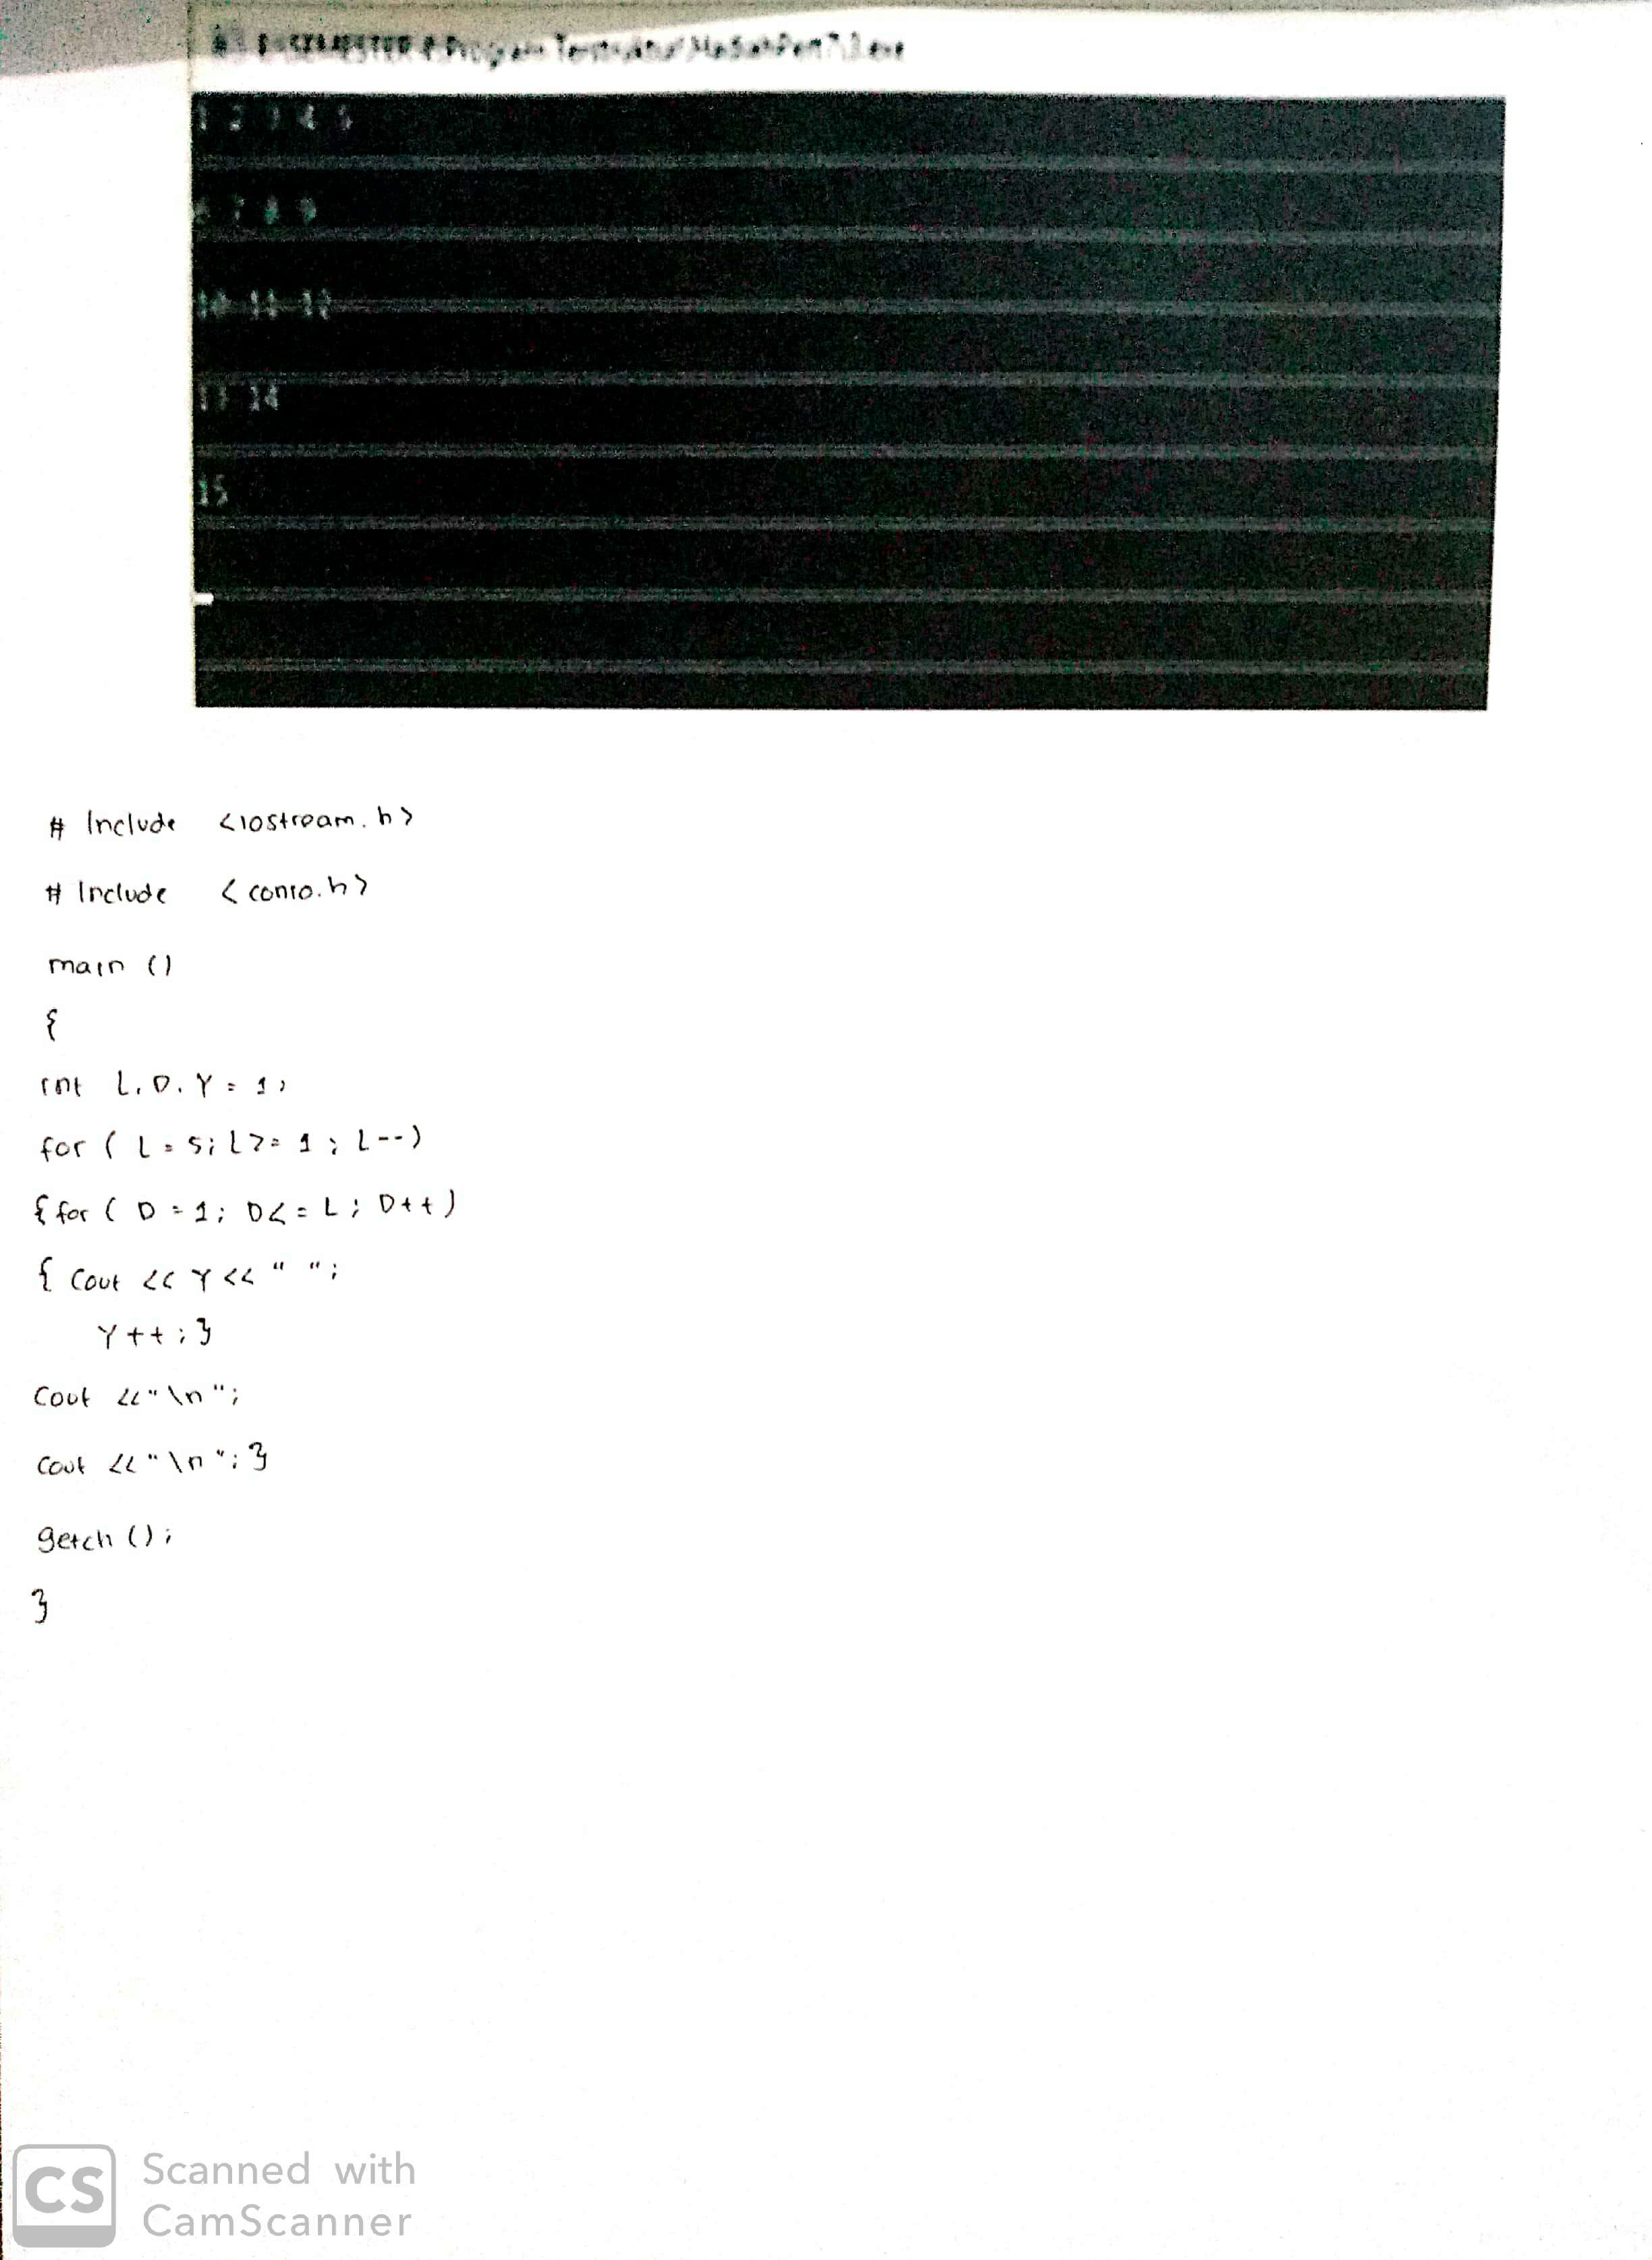 Program Terstruktur\Madiah\Pert7\3.exe
1 2 3 4 5
6 7 8 9
10 11 12
13 14
15
# Include <iostream.h>
# Include <conio.h>
main ()
{
int L, D, Y = 1;
for ( L = 5; L >= 1 ; L--)
{ for ( D = 1; D <= L ; D++)
{ Cout << Y << " ";
Y ++ ; }
Cout << "\n";
Cout << "\n"; }
getch () ;
}
CS Scanned with
CamScanner